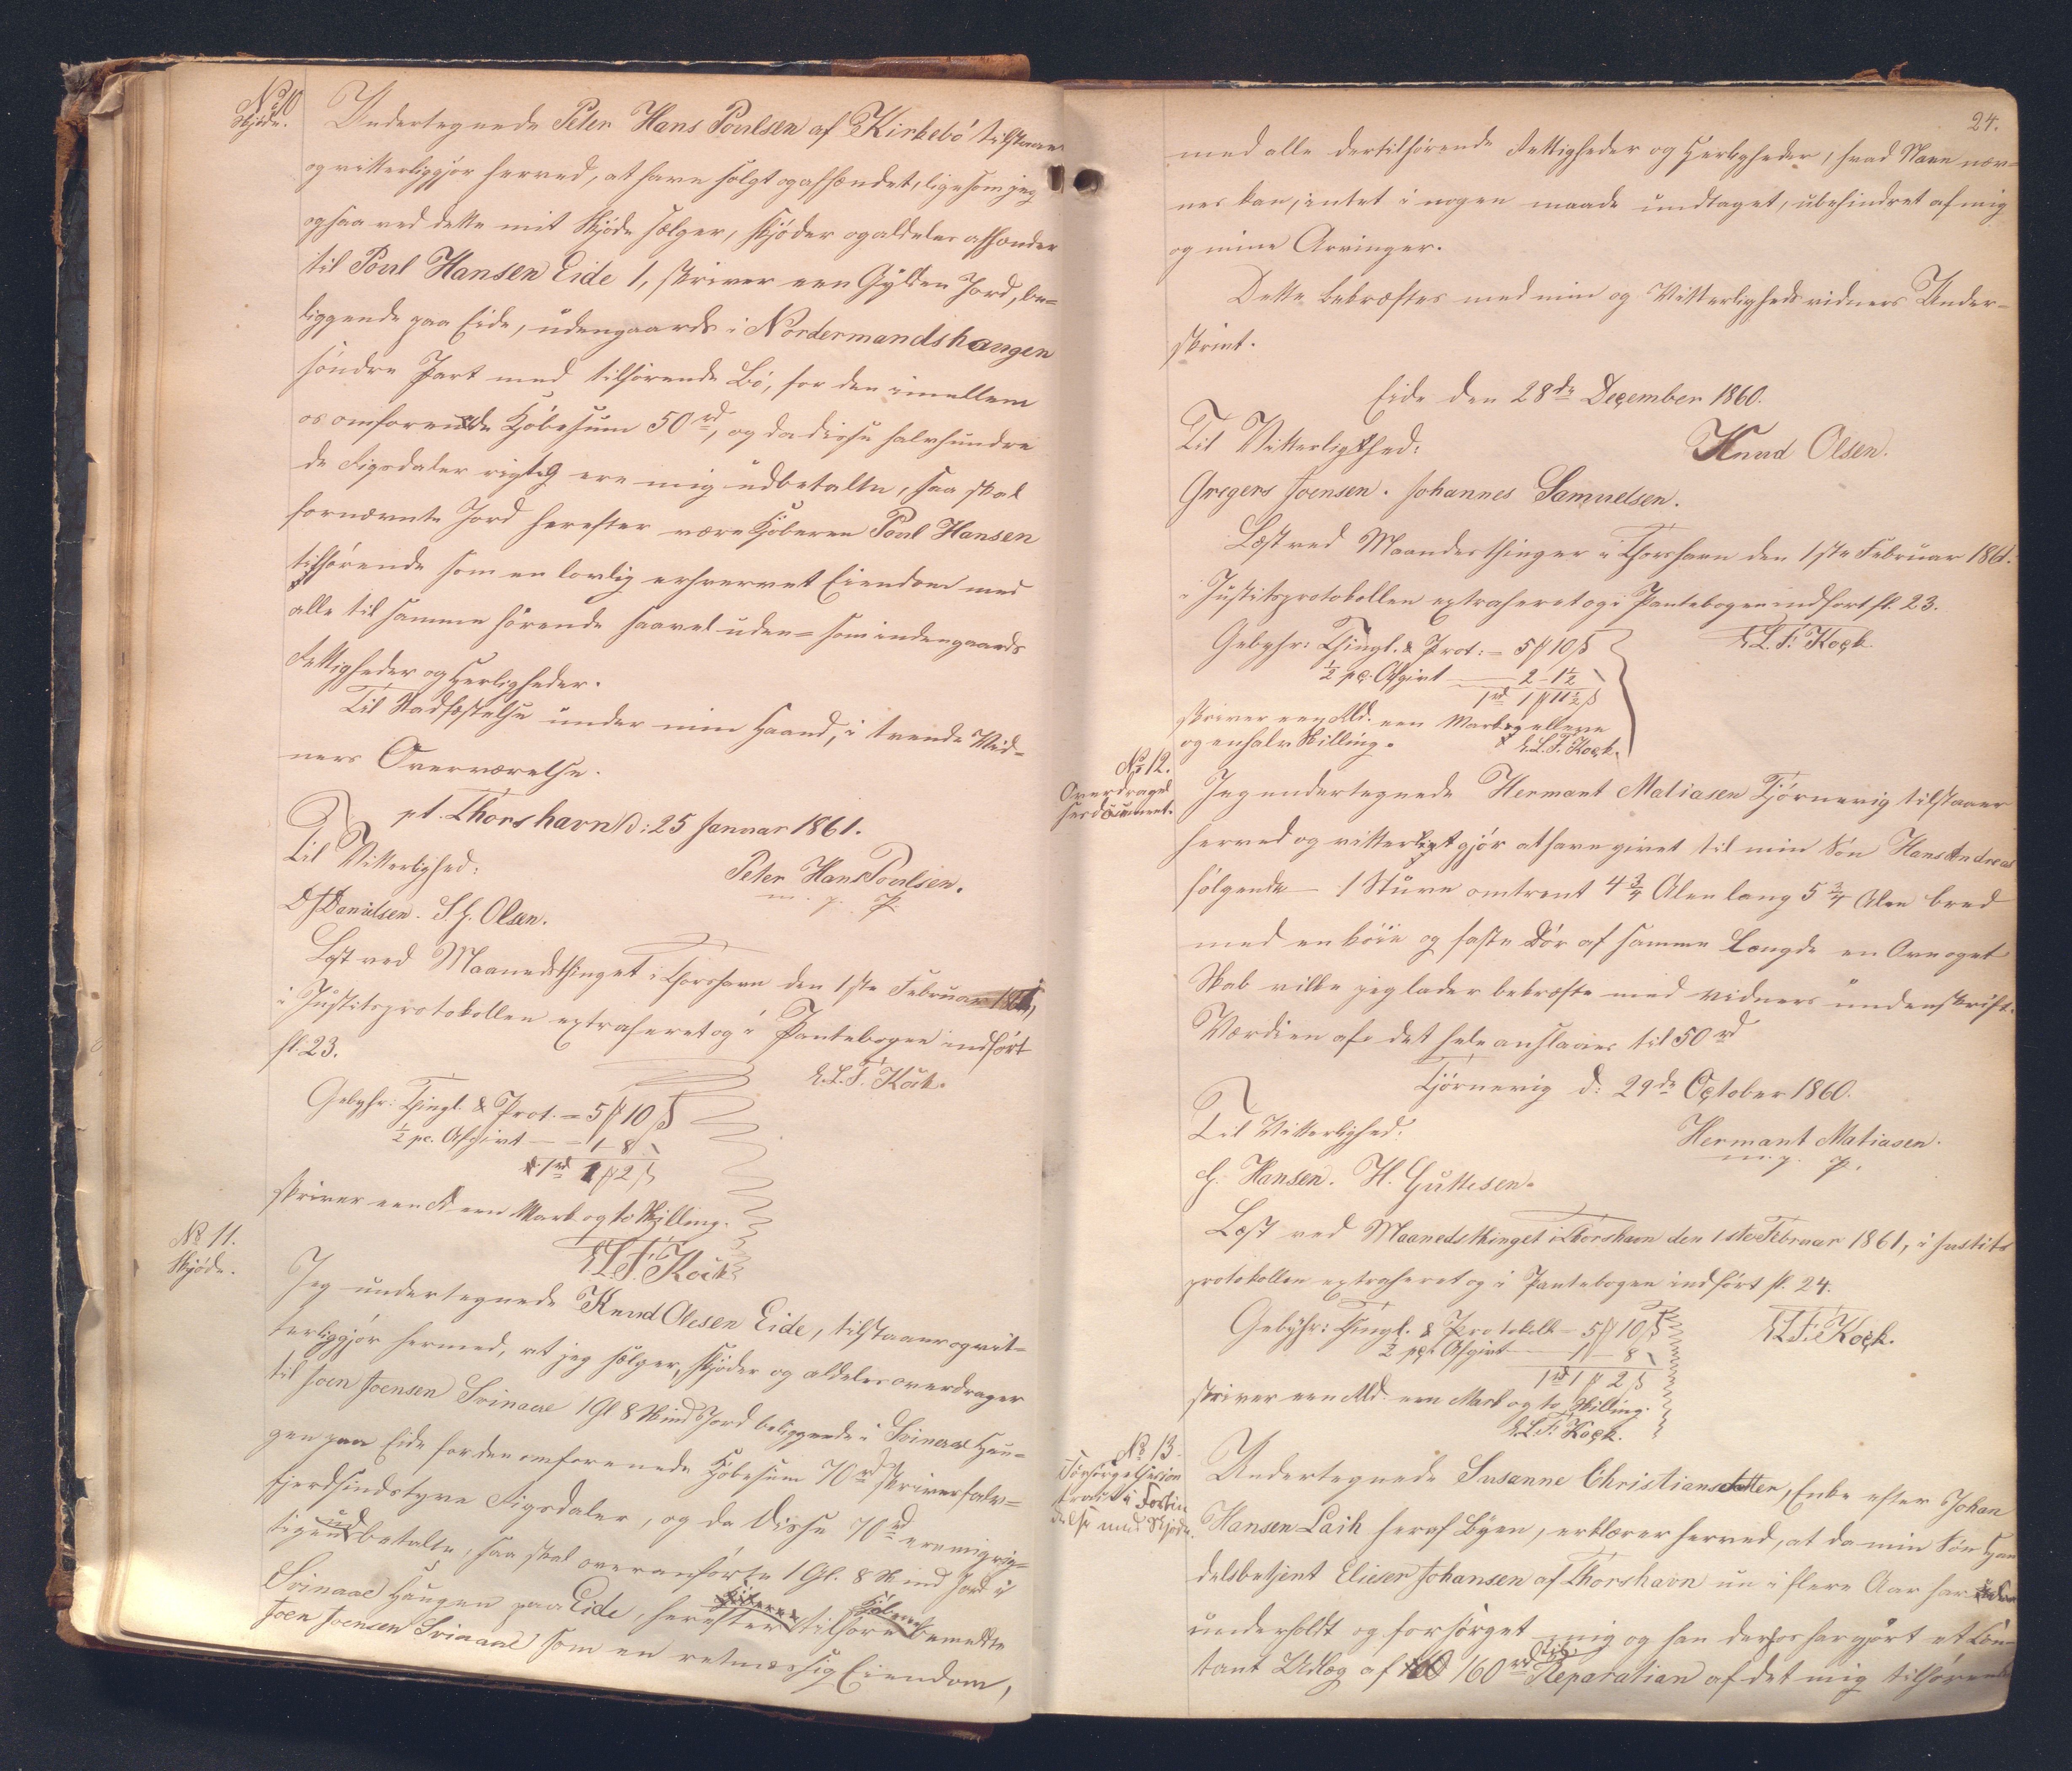 No 10
Skjøde.
Undertegnede Peter Hans Poulsen af Kirkebö tilstaaer
og vitterliggjør herved, at have solgt og afhændet, ligesom jeg
ogsaa ved dette mit Skjøde sælger, skjøder og aldeles afhænder
til Poul Hansen Eide 1, skriver een Gylden Jord, be=
liggende paa Eide, udengaards i Nordermandshaugen
söndre Part med tilhörende Bö, for den imellem
os omforenede Kjöbesum 50 rd, og da disse halvhundre
de Rigsdaler rigtig ere mig udbetalte, saa skal
fornævnte Jord herefter være Kjöberen Poul Hansen
tilhörende som en lovlig erhvervet Eiendom med
alle til samme hörende saavel uden= som indengaards
Rettigheder og Herligheder.
Til Stadfæstelse under min Haand, i tvende Vid=
ners Overværelse.
pt. Thorshavn d: 25 Januar 1861.
Til Vitterlighed:
Peter Hans Poulsen.
m. p.
DJDanielsen. S. H. Olsen.
Læst ved Maanedsthinget i Thorshavn den 1ste Februar 1861,
i Justitsprotokollen extraheret og i Pantebogen indført
fl. 23.
E.L.T. Kock.
Gebyhr: Thingl. & Prot. = 5 ℔ 10 ß
½ pc. Afgivt — = 1 - 8 "
1 rd 1 ℔ 2 ß
skriver een Rd een Mark og to Skilling.
E.L.T. Kock
No 11.
Skjøde.
Jeg undertegnede Knud Olesen Eide, tilstaaer og vit=
terliggjør hermed, at jeg sælger, skjøder og aldeles overdrager
til Joen Joensen Svinaae 1 Gl 8 Skind Jord beliggende i Svinaae Hau=
gen paa Eide for den omforenede Kjöbesum 70 rd skriver halv=
fjerdsindstyve Rigsdaler, og da disse 70 rd ere mig rig=
tigen udbetalte, saa skal ovenanförte 1 Gl. 8 Skind Jord i
Svinaae Haugen paa Eide, herefter tilhøre Kjöberen bemeldte
Joen Joensen Svinaae som en retmæssig Eiendom,
24.
med alle dertilhörende Rettigheder og Herligheder, hvad Navn næv=
nes kan, intet i nogen maade undtaget, ubehindret af mig
og mine Arvinger.
Dette bekræftes med min og Vitterligheds vidners Under=
skrivt.
Eide den 28de December 1860.
Til Vitterlighed:
Knud Olsen.
Gregers Joensen. Johannes Samuelsen.
Læst ved Maandesthinget i Thorshavn den 1ste Februar 1861.
i Justitsprotokollen extraheret og i Pantebogen indført fl. 23.
E.L.T. Kock.
Gebyhr: Thingl. & Prot: = 5 ℔ 10 ß
½ pc. Afgivt — 2 - 1½ "
1 rd 1 ℔ 11½ ß
skriver een Rd. een Mark og elleve
og en halv Skilling.
E.L.T. Kock.
No 12.
Overdragel
sesdocument.
Jeg undertegnede Hermant Matiasen Tjörnevig tilstaaer
herved og vitterligt gjör at have givet til min Sön Hans Andreas
følgende — 1 Stúve omtrent 4 3/4 Alen lang 5 3/4 Alen bred
med en böie og faste Dör af samme Længde en Ovn og et
Skab vilke jeg lader bekræfte med vidners underskrift.
Værdien af det hele anslaaes til 50 rd
Tjörnevig d: 29de October 1860.
Til Vitterlighed:
Hermant Matiasen.
m. p.
H. Hansen. H. Guttesen.
Læst ved Maanedsthinget i Thorshavn den 1ste Februar 1861, i Justits
protokollen extraheret og i Pantebogen indført fl. 24.
E.L.T. Kock.
Gebyhr: Thingl. & Protokoll = 5 ℔ 10 ß
½ pct Afgivt — 1 - 8 "
1 rd 1 ℔ 2 ß
skriver een Rd. een Mark og to Skilling.
E.L.T. Kock.
No 13.
Undertegnede Susanne Christiansdatter, Enke efter Johan
Hansen Laih heraf Byen, erklærer herved, at da min Sön Han
delsbetjent Elieser Johansen af Thorshavn nu i flere Aar har
underholdt og forsörget mig og han derhos har gjört et Con=
tant Udlæg af 160 rd til Reparation af det mig tilhørende